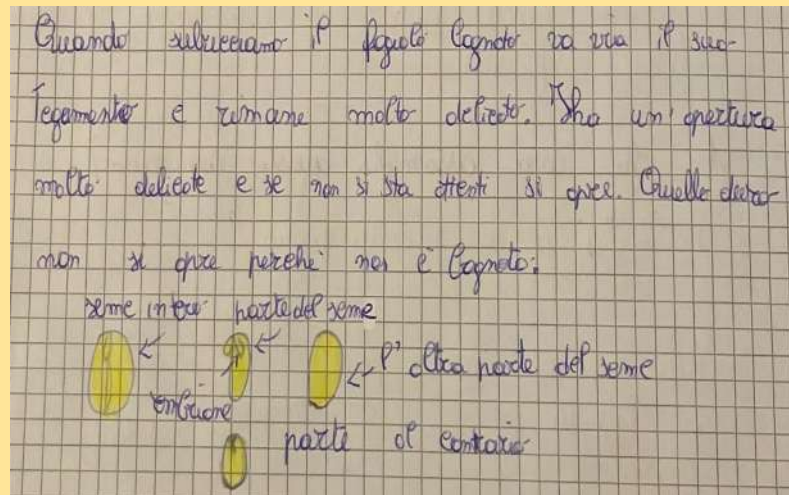 Quando sbucciamo il fagiolo bagnato va via il suo
tegamento e rimane molto delicato. Tha un'apertura
molto delicate e se non si sta attenti si apre. Quello
non si apre perché non è bagnato.
seme intero parte del seme
l'altra parte del seme
embrione
parte al contrario